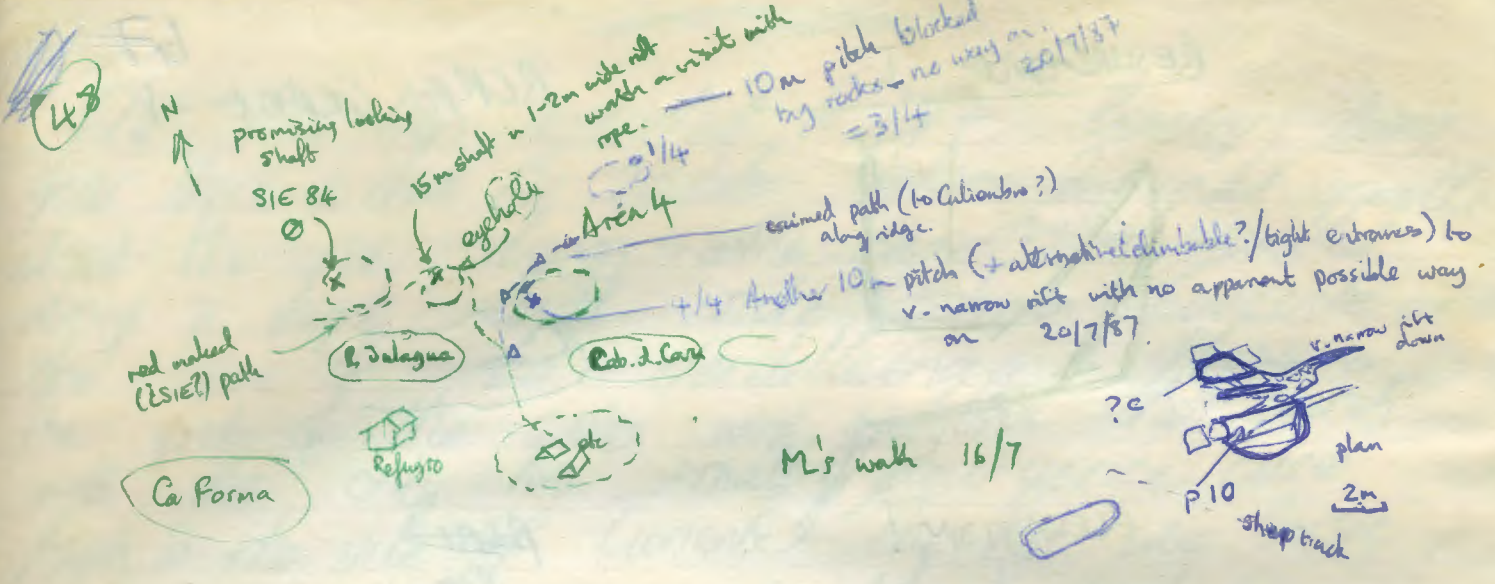 48
N
promising looking
shaft
SIE 84
15m shaft in 1-2m wide rift
worth a visit with
rope.
eyehole
10m pitch blocked
by rocks - no way on.
20/7/87
= 3/4
1/4
Area 4
cairned path (to Culiembro?)
along ridge.
4/4 Another 10m pitch (+ alternative climbable?/tight entrances) to
v. narrow rift with no apparent possible way
on 20/7/87.
red marked
(¿SIE?) path
Cab. d. Cara
Refugio
etc
Ca Forma
M's walk 16/7
v. narrow rift
down
?c
plan
2m
p10
sheep track